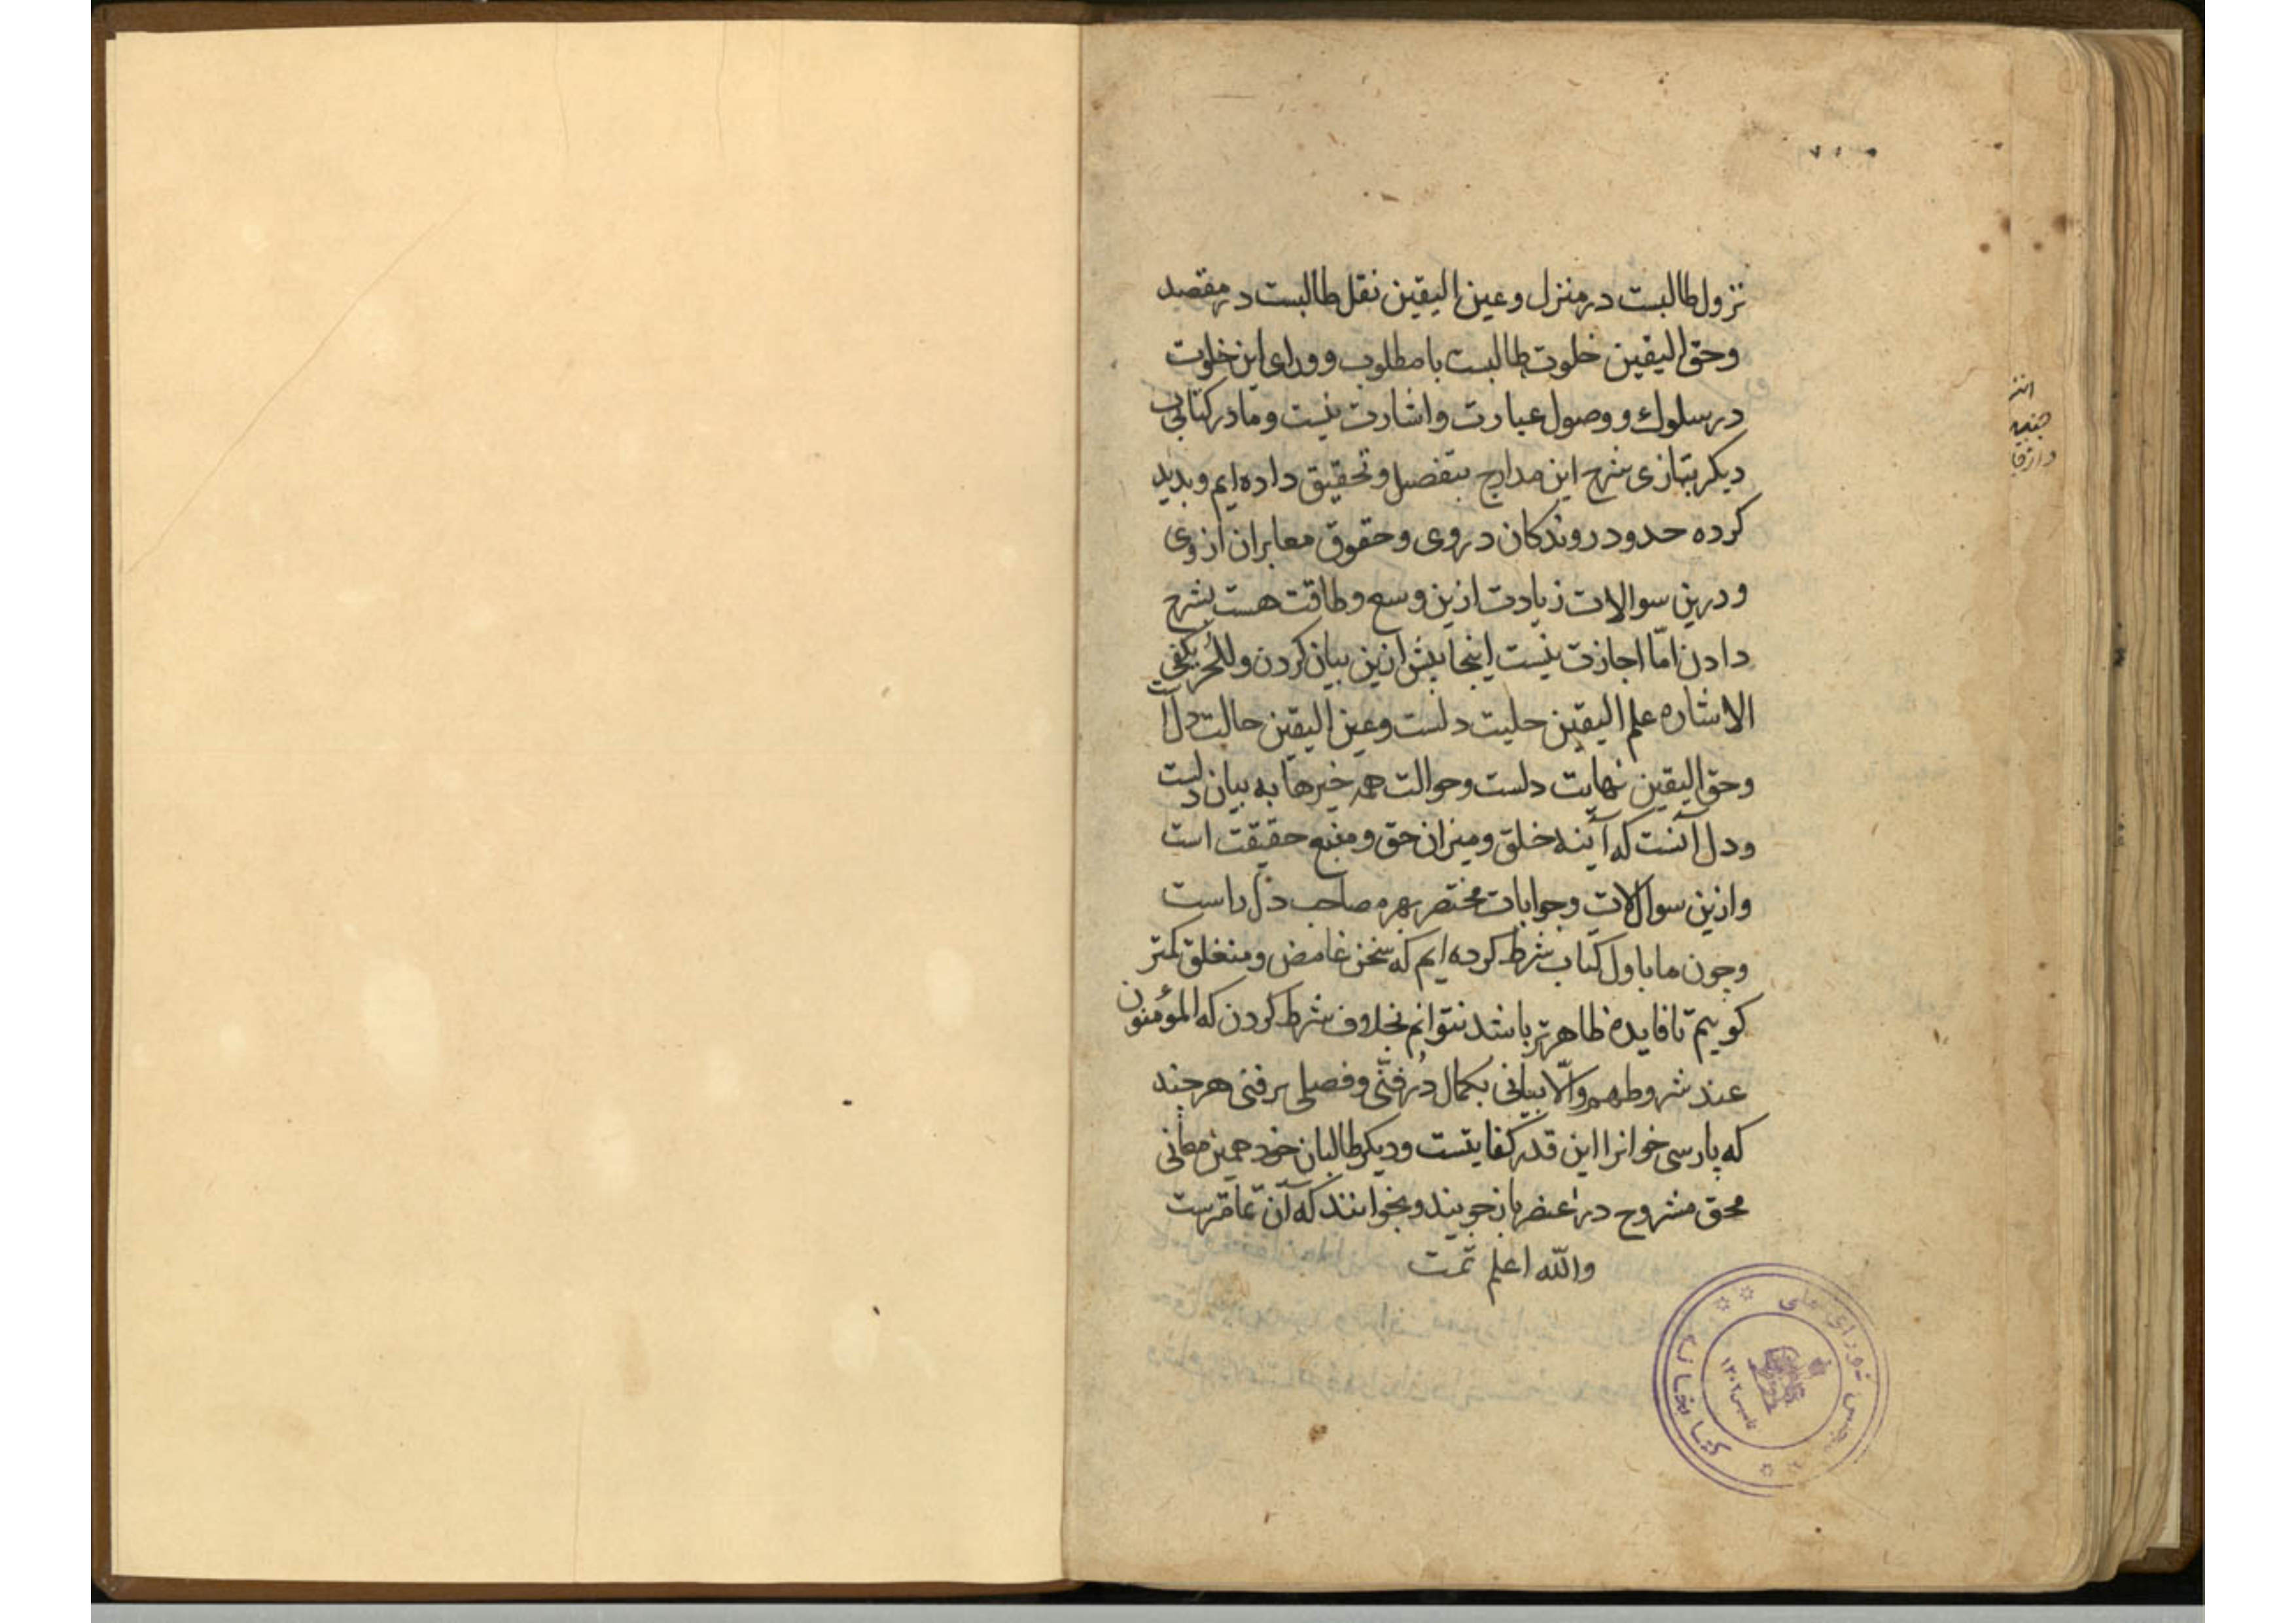 نزول طالبست در منزل وعین الیقین نقل طالبست در مقصد
وحق الیقین خلوت طالبست با مطلوب وورای این خلوت
در سلوك و وصول عبارت واشارت نیست وما در کتابی
دیکر بتازی شرح این مدارج بتفصیل وتحقیق داده ایم وبدید
کرده حدود روندکان در وی وحقوق معابران از وی
ودرین سوالات زیادت ازین وسع وطاقت هست بشرح
دادن امّا اجازت نیست اینجا بیش ازین بیان کردن وللحُر یکفی
الاشاره علم الیقین حلیت دلست وعین الیقین حالت دل است
وحق الیقین نهایت دلست وحوالت همه خیرها به بیان دلست
ودل آنست که آینه خلق ومیزان حق ومنبع حقیقت است
وازین سوالات وجوابات مختصر بهره صاحب دل راست
وچون ما باول کتاب شرط کرده ایم که سخن غامض ومنغلق کمتر
کوییم تا فایده ظاهرتر باشد نتوانم بخلاف شرط کردن که المؤمنون
عند شروطهم والّا بیانی بکمال در فنّی وفصلی برفتی هر چند
که پارسی خوانرا این قدر کفایتست ودیکر طالبان خود همین معانی
محقق مشروح در باز جویند وبخوانند که آن تمامترست
والله اعلم تمت
کتابخانه
مجلس شورای ملی
تاسیس ۱۳۰۲